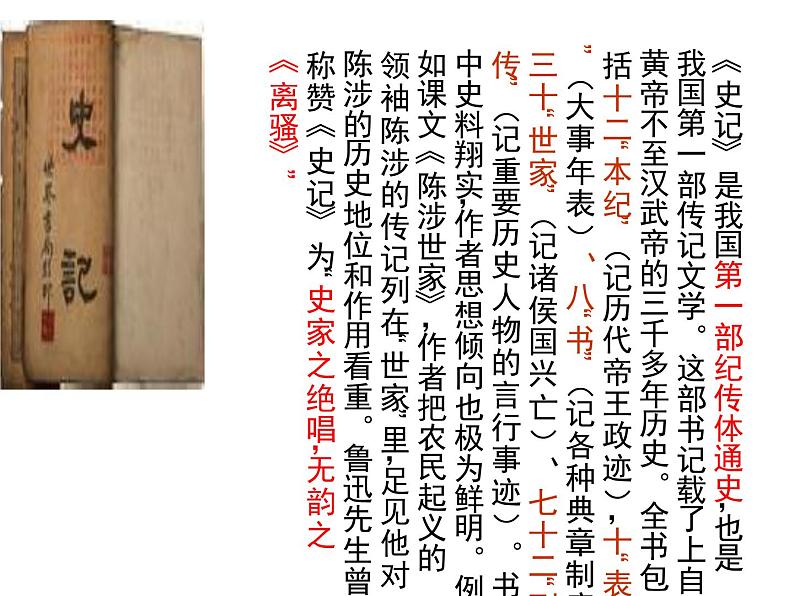 《史记》是我国第一部纪传体通史,也是
我国第一部传记文学。这部书记载了上自
黄帝不至汉武帝的三千多年历史。全书包
括十二“本纪”(记历代帝王政迹),十“表
”(大事年表)、八“书”(记各种典章制
三十“世家”(记诸侯国兴亡)、七十二
传”(记重要历史人物的言行事迹)。书
中史料翔实,作者思想倾向也极为鲜明。例
如课文《陈涉世家》,作者把农民起义的
领袖陈涉的传记列在“世家”里,足见他对
陈涉的历史地位和作用看重。鲁迅先生曾
称赞《史记》为“史家之绝唱,无韵之
《离骚》”
史記
世界書局影印